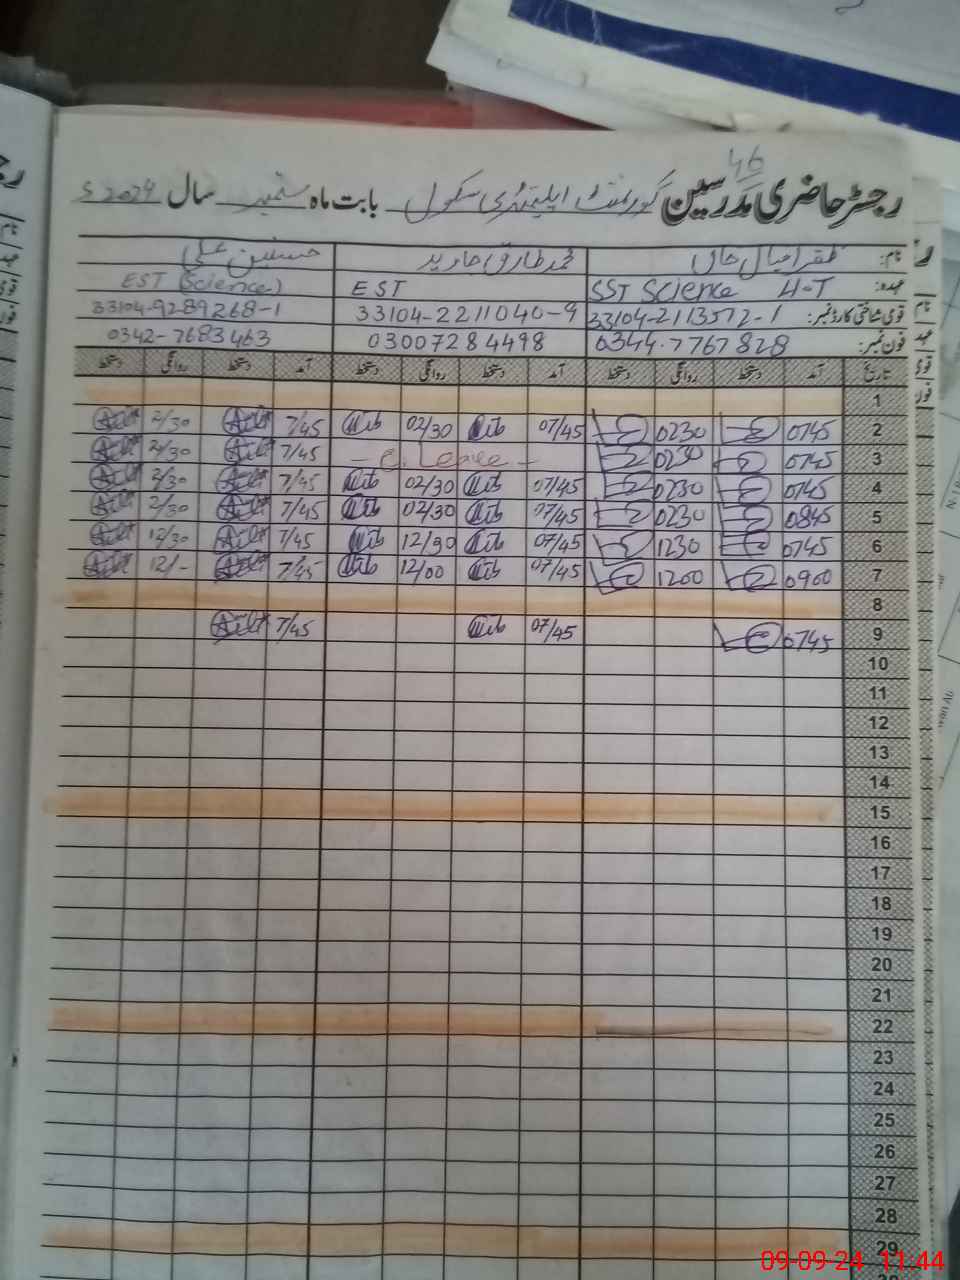 46
رجسٹر حاضری مدرسین گورنمنٹ ایلیمنٹری سکول بابت ماہ ستمبر سال 2024
نام: ظفر اقبال خاں محمد طارق جاوید حسنین علی
عہدہ: SST Science H.T EST EST (Science)
قومی شناختی کارڈ نمبر: 33104-2113572-1 33104-2211040-9 33104-9289268-1
فون نمبر: 0344-7767828 03007284498 0342-7683463
تاریخ آمد دستخط روانگی دستخط آمد دستخط روانگی دستخط آمد دستخط روانگی دستخط
1
2 0745 0230 07/45 02/30 7/45 2/30
3 0745 0230 - C. Leave - 7/45 2/30
4 0745 0230 07/45 02/30 7/45 2/30
5 0845 0230 07/45 02/30 7/45 2/30
6 0745 1230 07/45 12/30 7/45 12/30
7 0900 1200 07/45 12/00 7/45 12/-
8
9 0745 07/45 7/45
10
11
12
13
14
15
16
17
18
19
20
21
22
23
24
25
26
27
28
29
09-09-24 11:44